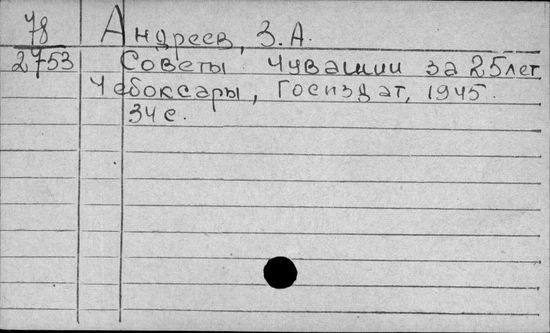 78 Андреев, З.А.
2753 Советы Чувашии за 25 лет
Чебоксары, Госиздат, 1945.
34 с.